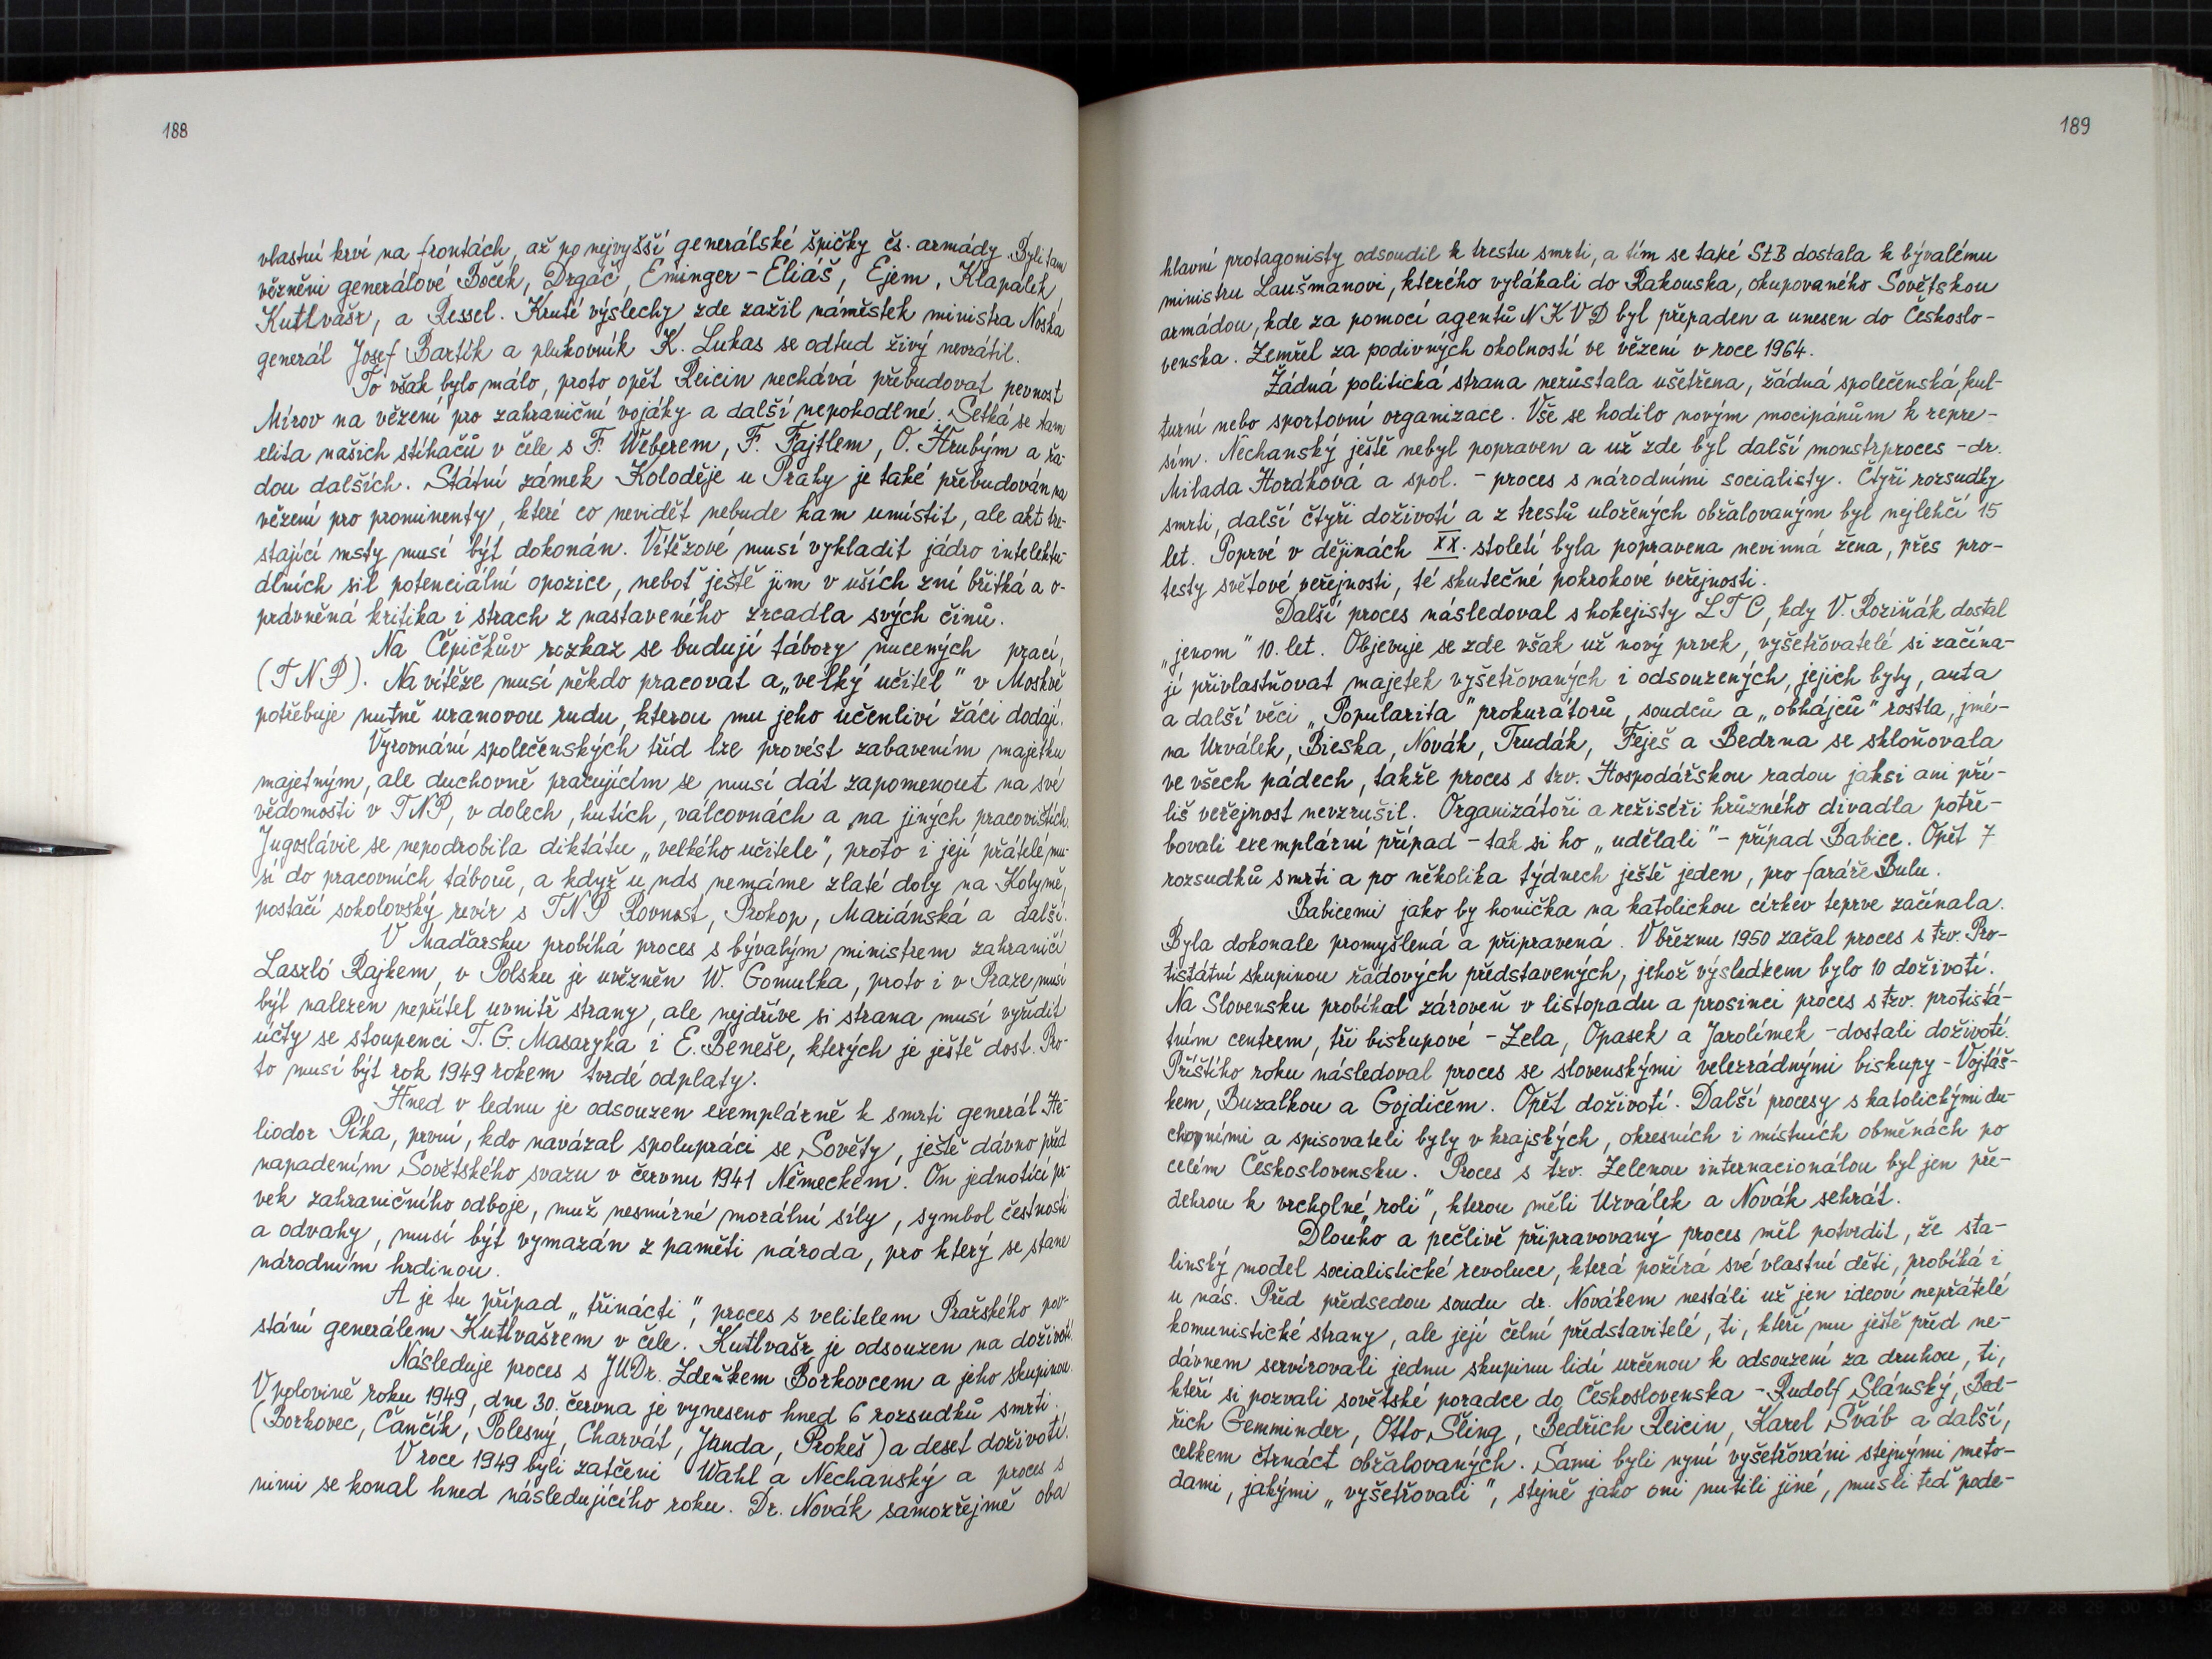 188
vlastní krví na frontách, až po nejvyšší generálské špičky čs. armády. Byli tam
vězněni generálové Boček, Drgač, Eminger - Eliáš, Ejem, Klapálek,
Kutlvašr, a Ressel. Kruté výslechy zde zažil náměstek ministra Noska
generál Josef Bartík a plukovník K. Lukas se odtud živý nevrátil.
To však bylo málo, proto opět Reicin nechává přebudovat pevnost
Mírov na vězení pro zahraniční vojáky a další nepohodlné. Setká se tam
elita našich stíhačů v čele s F. Weberem, F. Fajtlem, O. Hrubým a řa-
dou dalších. Státní zámek Koloděje u Prahy je také přebudován na
vězení pro prominenty, které co nevidět nebude kam umístit, ale akt tre-
stající msty musí být dokonán. Vítězové musí vykladit jádro intelektu-
álních sil potenciální opozice, neboť ještě jim v uších zní břitká a o-
právněná kritika i strach z nastaveného zrcadla svých činů.
Na Čepičkův rozkaz se budují tábory nucených prací,
(TNP). Na vítěze musí někdo pracovat a „velký učitel" v Moskvě
potřebuje nutně uranovou rudu, kterou mu jeho učenliví žáci dodají.
Vyrovnání společenských tříd lze provést zabavením majetku
majetným, ale duchovně pracujícím se musí dát zapomenout na své
vědomosti v TNP, v dolech, hutích, válcovnách a na jiných pracovištích.
Jugoslávie se nepodrobila diktátu „velkého učitele", proto i její přátelé mu-
sí do pracovních táborů, a když u nás nemáme zlaté doly na Kolymě,
postačí sokolovský revír s TNP Rovnost, Prokop, Mariánská a další.
V Maďarsku probíhá proces s bývalým ministrem zahraničí
Laszló Rajkem, v Polsku je uvězněn W. Gomulka, proto i v Praze musí
být nalezen nepřítel uvnitř strany, ale nejdříve si strana musí vyřídit
účty se stoupenci T. G. Masaryka i E. Beneše, kterých je ještě dost. Pro-
to musí být rok 1949 rokem tvrdé odplaty.
Hned v lednu je odsouzen exemplárně k smrti generál He-
liodor Píka, první, kdo navázal spolupráci se Sověty, ještě dávno před
napadením Sovětského svazu v červnu 1941 Německem. On jednotící pr-
vek zahraničního odboje, muž nesmírné morální síly, symbol čestnosti
a odvahy, musí být vymazán z paměti národa, pro který se stane
národním hrdinou.
A je tu případ „třinácti", proces s velitelem Pražského pov-
stání generálem Kutlvašrem v čele. Kutlvašr je odsouzen na doživotí.
Následuje proces s JUDr. Zdeňkem Borkovcem a jeho skupinou.
V polovině roku 1949, dne 30. června je vyneseno hned 6 rozsudků smrti.
(Borkovec, Čančík, Polesný, Charvát, Janda, Prokeš) a deset doživotí.
V roce 1949 byli zatčeni Wahl a Nechanský a proces s
nimi se konal hned následujícího roku. Dr. Novák samozřejmě oba
189
hlavní protagonisty odsoudil k trestu smrti, a tím se také StB dostala k bývalému
ministru Laušmanovi, kterého vylákali do Rakouska, okupovaného Sovětskou
armádou, kde za pomocí agentů NKVD byl přepaden a unesen do Českoslo-
venska. Zemřel za podivných okolností ve vězení v roce 1964.
Žádná politická strana nezůstala ušetřena, žádná společenská, kul-
turní nebo sportovní organizace. Vše se hodilo novým mocipánům k repre-
sím. Nechanský ještě nebyl popraven a už zde byl další monstrproces - dr.
Milada Horáková a spol. - proces s národními socialisty. Čtyři rozsudky
smrti, další čtyři doživotí a z trestů uložených obžalovaným byl nejlehčí 15
let. Poprvé v dějinách XX. století byla popravena nevinná žena, přes pro-
testy světové veřejnosti, té skutečné pokrokové veřejnosti.
Další proces následoval s hokejisty LTC, kdy V. Roziňák dostal
„jenom" 10. let. Objevuje se zde však už nový prvek, vyšetřovatelé si začína-
jí přivlastňovat majetek vyšetřovaných i odsouzených, jejich byty, auta
a další věci „Popularita" prokurátorů, soudců a „obhájců" rostla, jmé-
na Urválek, Bieska, Novák, Trudák, Feješ a Bedrna se skloňovala
ve všech pádech, takže proces s tzv. Hospodářskou radou jaksi ani pří-
liš veřejnost nevzrušil. Organizátoři a režiséři hrůzného divadla potře-
bovali exemplární případ - tak si ho „udělali" - případ Babice. Opět 7
rozsudků smrti a po několika týdnech ještě jeden, pro faráře Bulu.
Babicemi jako by honička na katolickou církev teprve začínala.
Byla dokonale promyšlená a připravená. V březnu 1950 začal proces s tzv. Pro-
tistátní skupinou řádových představených, jehož výsledkem bylo 10 doživotí.
Na Slovensku probíhal zároveň v listopadu a prosinci proces s tzv. protistá-
tním centrem, tři biskupové - Zela, Opasek a Jarolímek - dostali doživotí.
Příštího roku následoval proces se slovenskými velezrádnými biskupy - Vojtáš-
kem, Buzalkou a Gojdičem. Opět doživotí. Další procesy s katolickými du-
chovními a spisovateli byly v krajských, okresních i místních obměnách po
celém Československu. Proces s tzv. Zelenou internacionálou byl jen pře-
dehrou k vrcholné „roli", kterou měli Urválek a Novák sehrát.
Dlouho a pečlivě připravovaný proces měl potvrdit, že sta-
linský model socialistické revoluce, která požírá své vlastní děti, probíhá i
u nás. Před předsedou soudu dr. Novákem nestáli už jen ideoví nepřátelé
komunistické strany, ale její čelní představitelé, ti, kteří mu ještě před ne-
dávnem servírovali jednu skupinu lidí určenou k odsouzení za druhou, ti,
kteří si pozvali sovětské poradce do Československa - Rudolf Slánský, Bed-
řich Gemminder, Otto Šling, Bedřich Reicin, Karel Šváb a další,
celkem čtrnáct obžalovaných. Sami byli nyní vyšetřováni stejnými meto-
dami, jakými „vyšetřovali", stejně jako oni nutili jiné, musli teď pode-